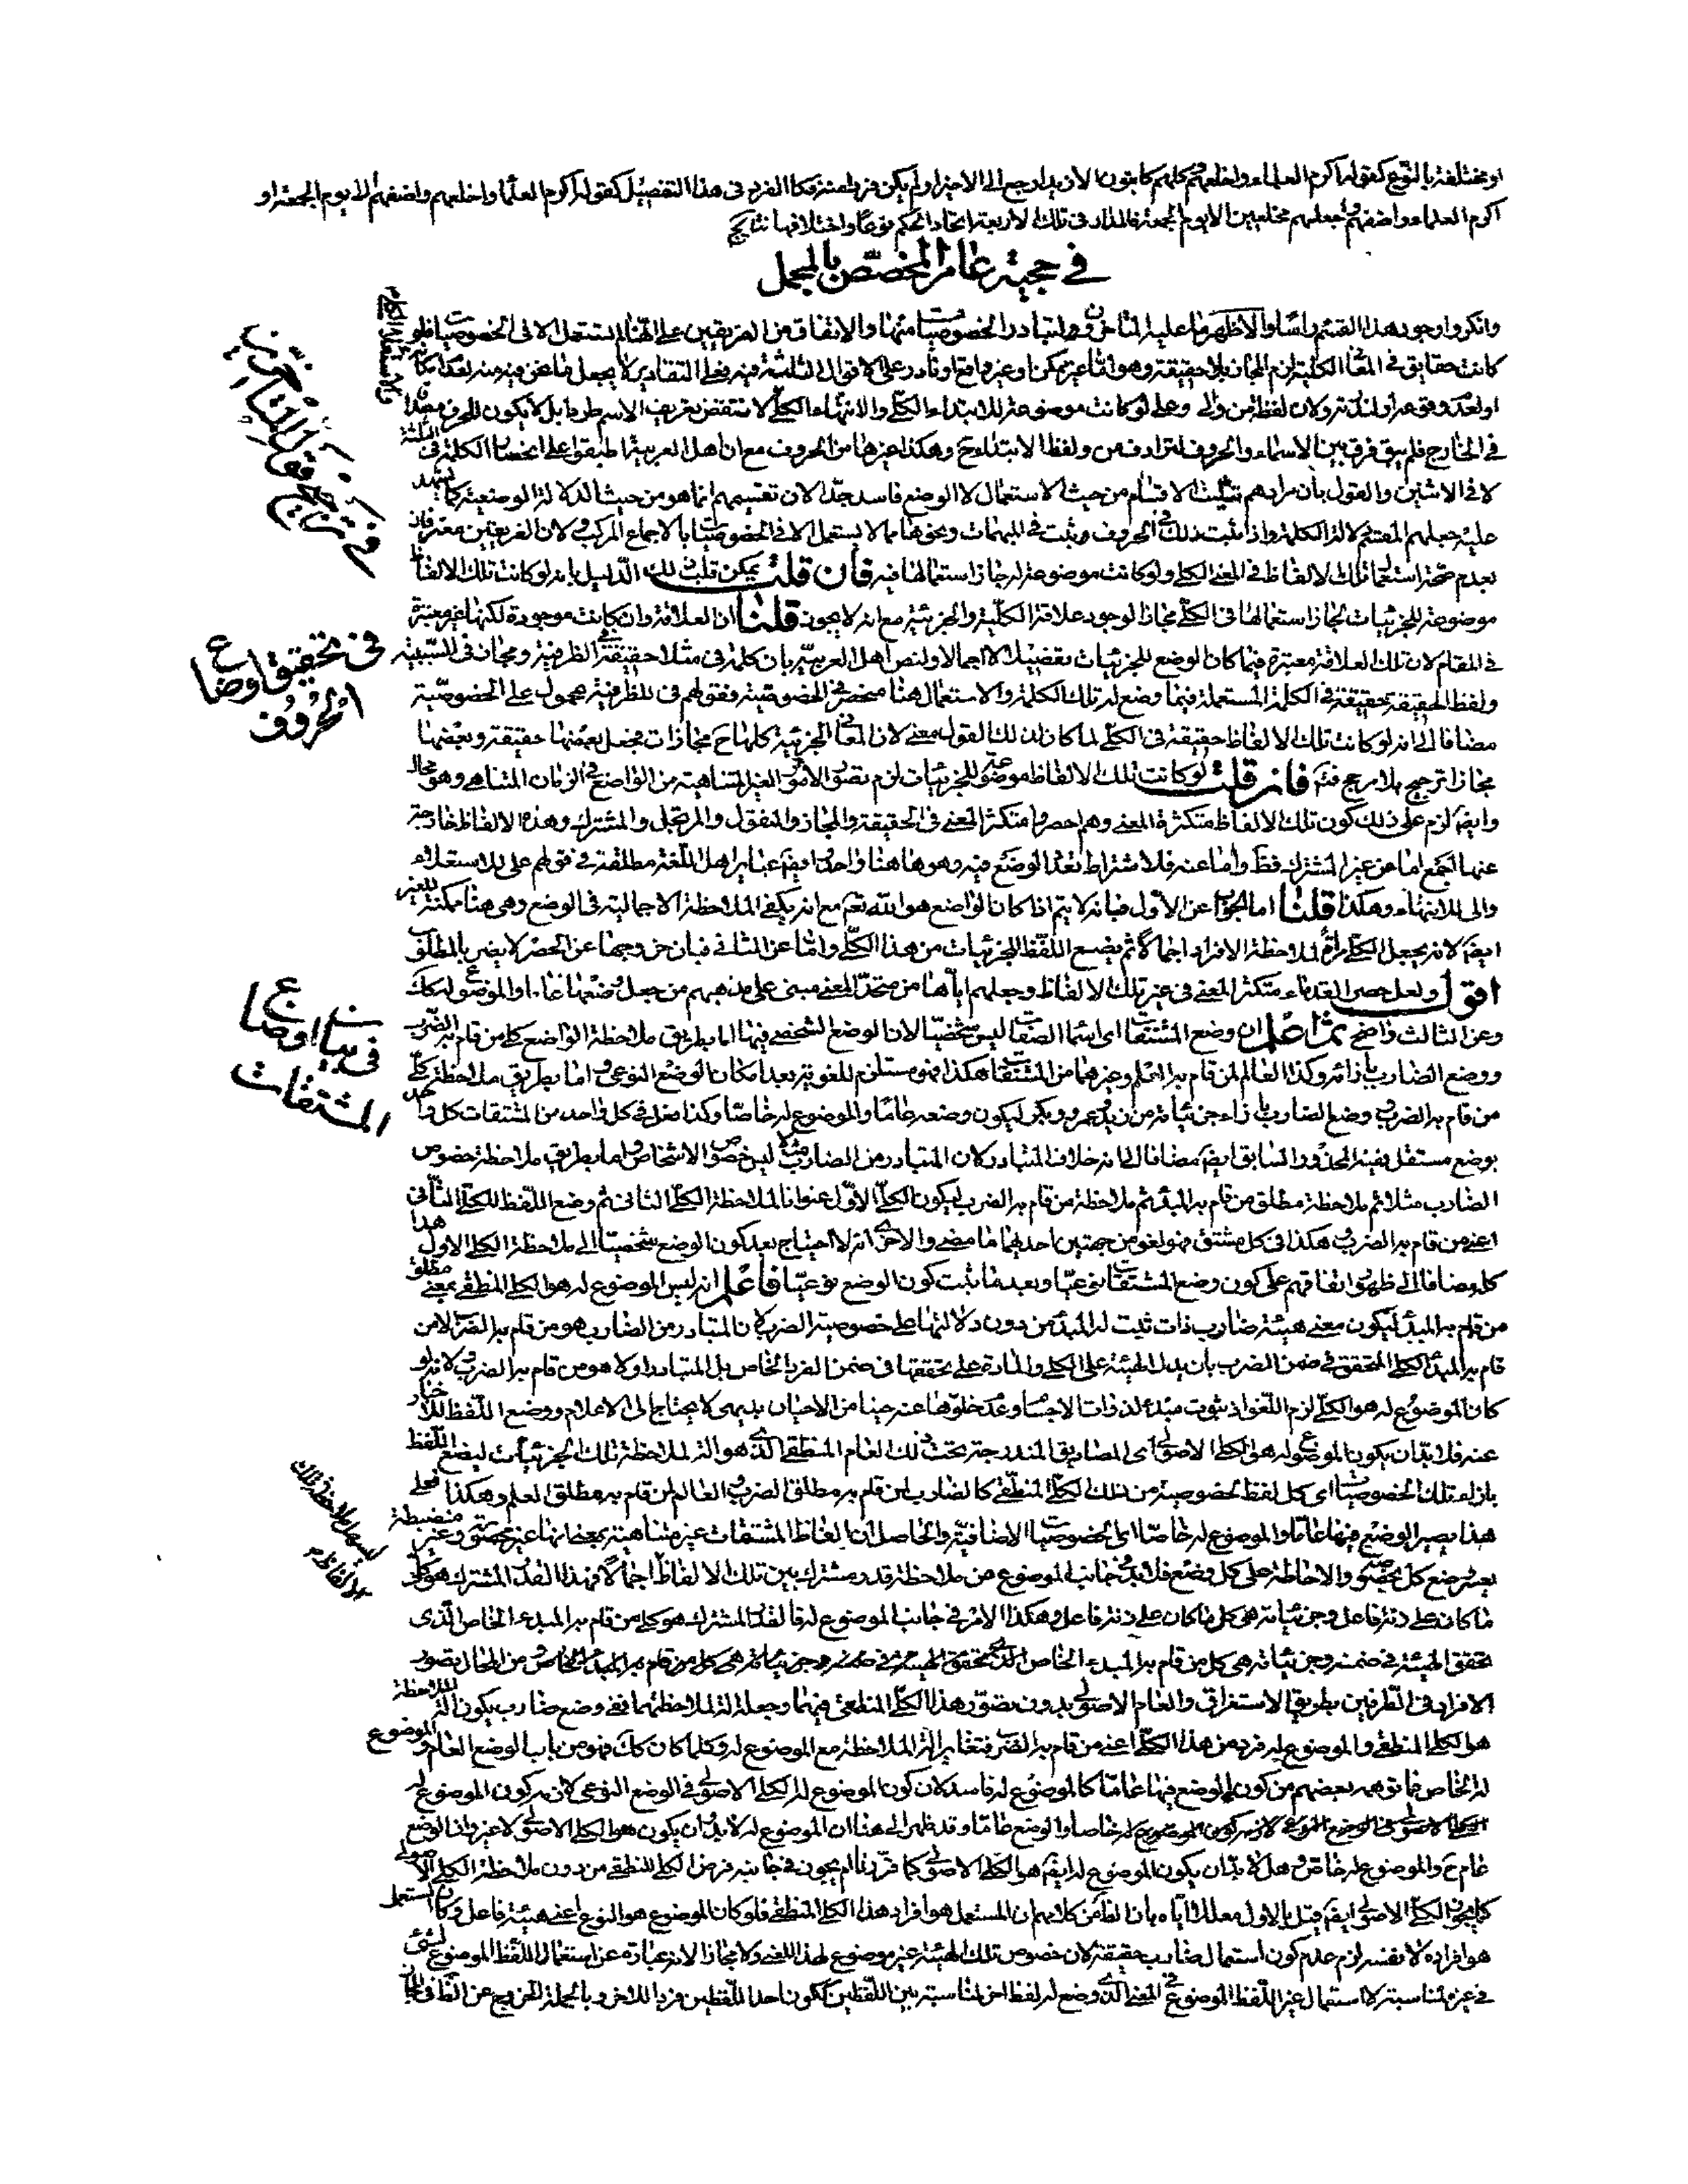 او مختلفة بالنوع كقوله اكرم العلماء واخلعهم كلهم كاتبون الا زيدا رجع الى الاخير ولم يكن في هذا التفصيل كقوله اكرم العلماء واخلعهم واضفهم الا يوم الجمعة او
اكرم العلماء واضفهم واجعلهم مخلعين الا يوم الجمعة فالمدار في تلك الاربعة اتحاد الحكم نوعا واختلافها نتايج
في حجية عام المخصّص بالمجمل
وانكروا وجود هذا القسم راسا والاظهر ما عليه المتاخرون لتبادر الخصوصيات منها والاتفاق من الفريقين على انها لم تستعمل الا في الخصوصيات فلو
كانت حقايق في المعاني الكلية لزم المجاز بلا حقيقة وهو اما غير ممكن او غير واقع او نادر على الاقوال الثلثة فيه فعلى التقادير لا يجعل ما نحن فيه منه لعدم امكانه
او لعدم وقوعه او لندرته ولان لفظة من والى وعلى لو كانت موضوعة للابتداء الكلي والانتهاء الكلي لانتقض تعريف الاسم طردا بل لا يكون للحرف مصداق
في الخارج فلم يبق فرق بين الاسماء والحروف لترادف من ولفظ الابتداء ح وهكذا غيرها من الحروف مع ان اهل العربية اطبقوا على انحصار الكلمة في الثلثة
لا في الاثنين والقول بان مرادهم تثليث الاقسام من حيث الاستعمال لا الوضع فاسد جدّا لان تقسيمهم انما هو من حيث الدلالة الوضعية كما يشهد
عليه جعلهم المقسم الكلمة واذا ثبت ذلك في الحروف وثبت في المبهمات ونحوها مما لا يستعمل الا في الخصوصيات بالاجماع المركب ولان الفريقين معترفان
بعدم صحة استعمال تلك الالفاظ في المعنى الكلي ولو كانت موضوعة له جاز استعمالها فيه فان قلت يمكن قلب ذلك الدّليل بانه لو كانت تلك الالفاظ
موضوعة للجزئيات لجاز استعمالها في الكلّي مجازا لوجود علاقة الكلّية والجزئية مع انه لا يجوز قلنا ان العلاقة وان كانت موجودة لكنها غير معتبرة
في المقام لان تلك العلاقة معتبرة فيما كان الوضع للجزئيات تفصيلا لا اجمالا ولنص اهل العربيّة بان كلمة في مثلا حقيقة في الظرفية ومجاز في السّببية
ولفظ الحقيقة حقيقة في الكلمة المستعملة فيما وضع له تلك الكلمة والاستعمال هنا منحصر في الخصوصية فقولهم في للظرفية محمول على الخصوصيّة
مضافا الى انه لو كانت تلك الالفاظ حقيقة في الكلّي لما كان لذلك القول معنى لان المعاني الجزئية كلها ح مجازات فجعل بعضها حقيقة وبعضها
مجازا ترجيح بلا مرجح فتم فان قلت لو كانت تلك الالفاظ موضوعة للجزئيات لزم تصور الامور الغير المتناهية من الواضع في الزمان المتناهي وهو محال
وايضا لزم على ذلك كون تلك الالفاظ متكثرة المعنى وهم حصروا متكثر المعنى في الحقيقة والمجاز والمنقول والمرتجل والمشترك وهذه الالفاظ خارجة
عنها اجمع اما عن غير المشترك فظ واما عنه فلاشتراط تعدد الوضع فيه وهو هاهنا واحد وايضا عباير اهل اللّغة مطلقة في قولهم على للاستعلاء
والى للانتهاء وهكذا قلنا اما الجواب عن الاول فبانه لا يتم اذا كان الواضع هو الله تعم مع انه يكفي الملاحظة الاجمالية في الوضع وهي هنا ممكنة للغير
ايضا لانه يجعل الكلّي مراة لملاحظة الافراد اجمالا ثم يضع اللّفظ للجزئيات من هذا الكلّي واما عن الثاني فبان خروجها عن الحصر لا يضر بالمطلب
اقول ولعل حصر القدماء متكثر المعنى في غير تلك الالفاظ وجعلهم اياها من متحد المعنى مبني على مذهبهم من جعل وضعها عاما والموضوع له كك
وعن الثالث واضح ثم اعلم ان وضع المشتقات اى اسماء الصفات ليس شخصيّا لان الوضع الشخصي فيها اما بطريق ملاحظة الواضع كلي من قام به الضّرب
ووضع الضارب بازائه وكذا العالم لمن قام به العلم وغيرهما من المشتقات هكذا فهو مستلزم للغوية بعد امكان الوضع النوعى واما بطريق ملاحظة كلّي
من قام به الضرب ووضع الضارب بازاء جزئياته من زيد وعمرو وبكر ليكون وضعه عاما والموضوع له خاصّا وكذا في كل واحد من المشتقات كل واحد
بوضع مستقل ففيه المحذور السابق ايضا مضافا الى انه خلاف المتبادر لان المتبادر من الضارب مثلا ليس خصوص الاشخاص واما بطريق ملاحظة خصوص
الضارب مثلا ثم ملاحظة مطلق من قام به المبدء ثم ملاحظة من قام به الضرب ليكون الكلّي الاوّل عنوانا لملاحظة الكلّي الثاني ثم وضع اللّفظ للكلّي الثّاني
اعني من قام به الضرب وهكذا في كل مشتق فهو لغو من جهتين احدهما ما مضى والاخرى انه لا احتياج بعد كون الوضع شخصيّا الى ملاحظة الكلي الاول هذا
كله مضافا الى ظهور اتفاقهم على كون وضع المشتقات نوعيّا وبعد ما ثبت كون الوضع نوعيّا فاعلم انه ليس الموضوع له هو الكلي المنطقي بمعنى مطلق
من قام به المبدء ليكون معنى هيئة ضارب ذات ثبت له المبدء من دون دلالتها على خصوصية الضرب لان المتبادر من الضارب هو من قام به الضرب لا من
قام به المبدء الكلي المتحقق في ضمن الضرب بان يدل الهيئة على الكلي والمادة على تحققها في ضمن الفرد الخاص بل المتبادر اولا هو من قام به الضرب ولانه لو
كان الموضوع له هو الكلّي لزم اللّغو اذ ثبوت مبدء لذات الاجسام وعدم خلوّها عنه حينا من الاحيان بديهى لا يحتاج الى الاعلام ووضع اللّفظ للاخبار
عنه فلا بد ان يكون الموضوع له هو الكلي الاصولي اى المصاديق المندرجة تحت ذلك العام المنطقي الذى هو الة لملاحظة تلك الجزئيات ليضع اللّفظ
بازاء تلك الخصوصيات اى كل لفظ لخصوصية من ذلك الكلّي المنطقي كالضارب لمن قام به مطلق الضرب والعالم لمن قام به مطلق العلم وهكذا فعلى
هذا يصير الوضع فيها عامّا والموضوع له خاصّا اى الخصوصيات الاضافيّة والحاصل ان الفاظ المشتقات غير متناهية بمعنى انها غير محصورة وغير منضبطة
يعسر وضع كل بخصوصه والاحاطة على كل وضع فلا بد في جانب الموضوع من ملاحظة قدر مشترك بين تلك الالفاظ اجمالا فهذا القدر المشترك هو كلي
ما كان على زنة فاعل وجزئياته هي كل ما كان على زنة فاعل وهكذا الامر في جانب الموضوع له فالقدر المشترك هو كلي من قام به المبدء الخاص الّذى
تحقق الهيئة في ضمنه وجزئياته هي كل من قام به المبدء الخاص
الافراد في الطّرفين بطريق الاستغراق والعام الاصولي بدون تصوّر هذا الكلّي المنطقي فيهما وجعله الة لملاحظتهما ففي وضع ضارب يكون الة الملاحظة
هو الكلي المنطقي والموضوع له فرد من هذا الكلّي اعني من قام به الضرب فتغاير الة الملاحظة مع الموضوع له وكلما كان كك فهو من باب الوضع العام والموضوع
له الخاص فما توهمه بعضهم من كون الوضع فيها عامّا كالموضوع له فاسد لان كون الموضوع له الكلي الاصولي في الوضع النوعى لازمه كون الموضوع له
الكلي الاصولي في الوضع النوعى لازمه كون الموضوع له خاصا والوضع عامّا وقد ظهر الى هنا ان الموضوع له لا بد ان يكون هو الكلي الاصولي لا غير وان الوضع
عام ح والموضوع له خاص وهل لا بدّ ان يكون الموضوع له ايضا هو الكلي الاصولي كما قرّرنا ام يجوز في جانبه فرض الكلي المنطقي من دون ملاحظة الكلي الاصولي
كما يجوز الكلّي الاصولي ايضا قيل بالاول معللا اياه بان الظ من كلامهم ان المستعمل هو افراد هذا الكلي المنطقي فلو كان الموضوع هو النوع اعني هيئة فاعل وكان المستعمل
هو افراده لا نفسه لزم عدم كون استعمال ضارب حقيقة لان خصوص تلك الهيئة غير موضوع لهذا المعنى ولا مجازا لانه عبارة عن استعمال اللّفظ الموضوع لشئ
في غيره لمناسبة لا استعمال غير اللّفظ الموضوع في المعنى الذى وضع له لفظ اخر لمناسبة بين اللّفظين ككون احد اللّفظين فردا للاخر وبالجملة الخروج عن الظ في المجاز
في تحقيق اوضاع
الحروف
في بيان اوضاع
المشتقات